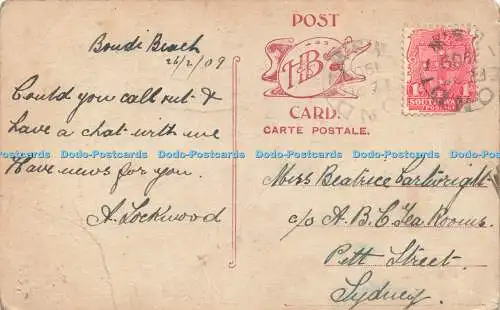 Bondi Beach
26/2/09
Could you call out &
have a chat with me
Have news for you.
A. Lockwood
POST
HB
CARD.
CARTE POSTALE.
1 SOUTH 1
Miss Beatrice Cartwright
c/o A.B.C Tea Rooms.
Pitt Street.
Sydney.
Dodo-Postcards.com Dodo-Postcards.com Dodo-Postcards.com Dodo-Postcards.com